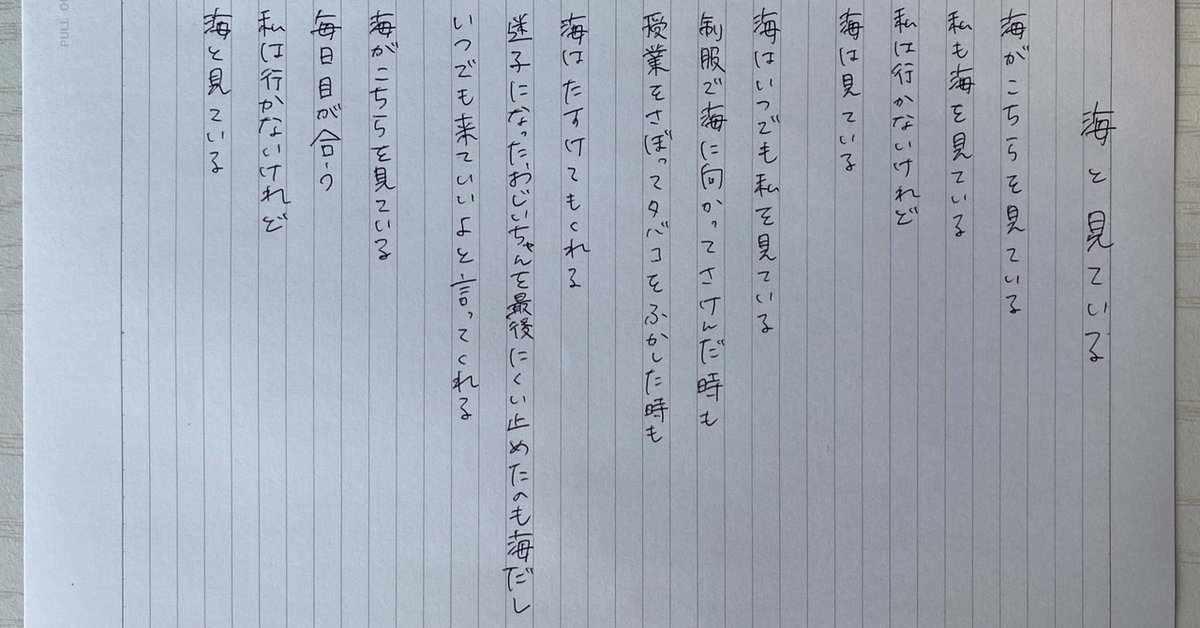 海と見ている
海がこちらを見ている
私も海を見ている
私は行かないけれど
海は見ている
海はいつでも私を見ている
制服で海に向かってさけんだ時も
授業をさぼってタバコをふかした時も
海はたすけてもくれる
迷子になったおじいちゃんを最後にくい止めたのも海だし
いつでも来ていいよと言ってくれる
海がこちらを見ている
毎日目が合う
私は行かないけれど
海と見ている
PULL O